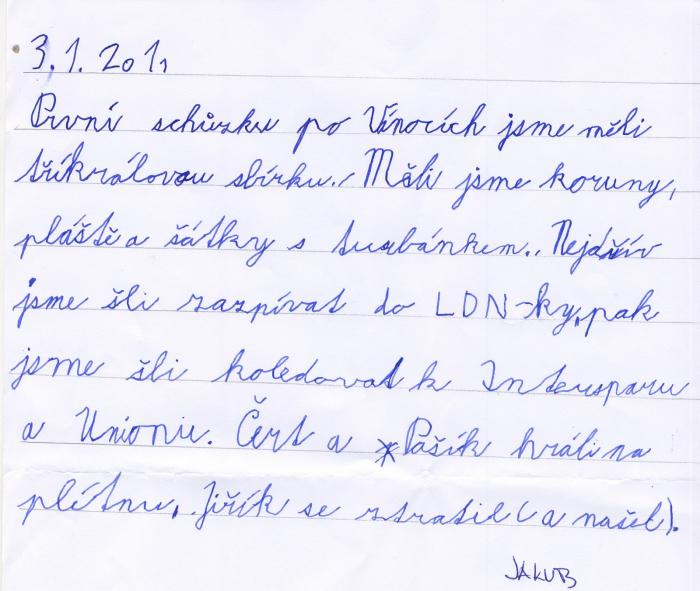 3.1.2011
První schůzku po Vánocích jsme měli
tříkrálovou sbírku. Měli jsme koruny,
pláště a šátky s turbánkem. Nejdřív
jsme šli zazpívat do LDN-ky, pak
jsme šli koledovat k Intersparu
a Unionu. Čert a Pašík hráli na
plétnu, Jiřík se ztratil (a našel).
JAKUB